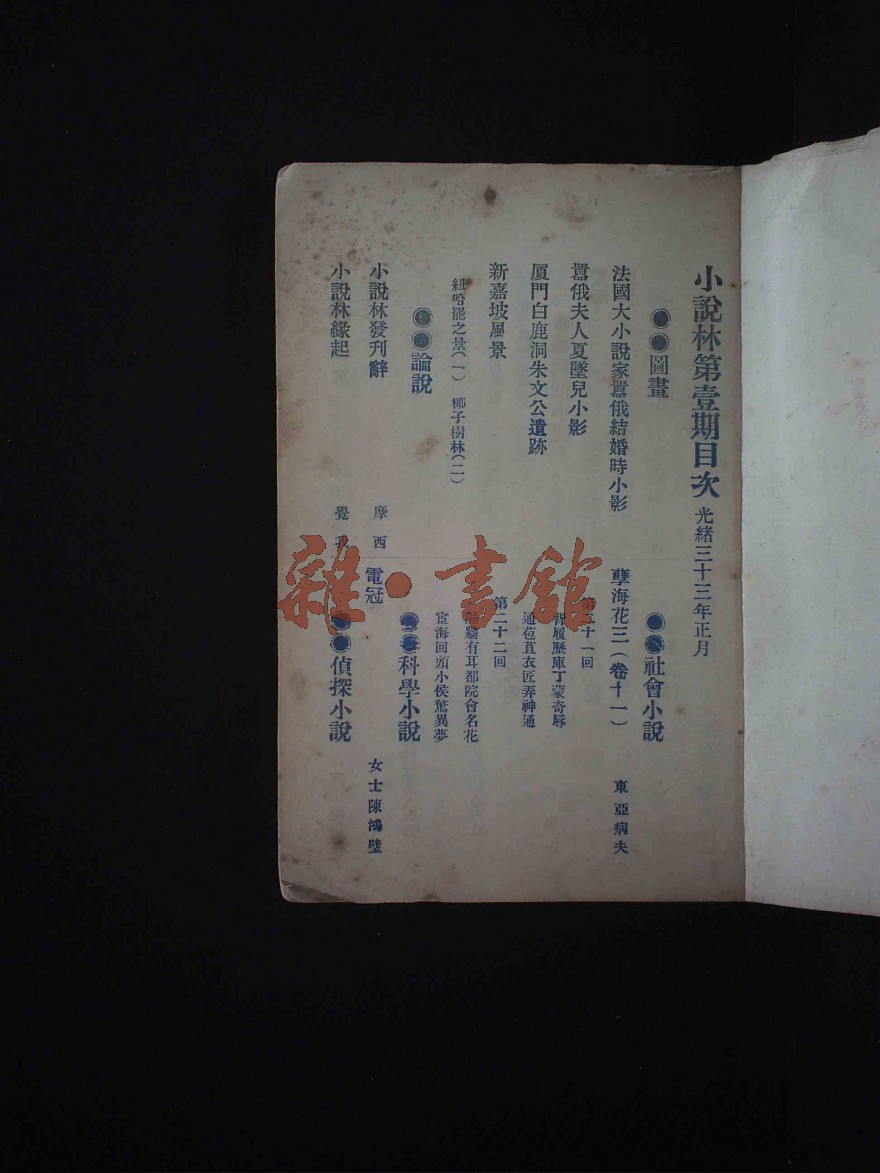 小說林第壹期目次 光緒三十三年正月
●●圖畫
法國大小說家囂俄結婚時小影
囂俄夫人夏墜兒小影
厦門白鹿洞朱文公遺跡
新嘉坡風景
紐哈罷之景(一) 椰子樹林(二)
●●論說
小說林發刊辭 摩西
小說林緣起 覺我
●●社會小說
孽海花三(卷十一) 東亞病夫
第二十一回
背履歷庫丁蒙奇辱
通苞苴衣匠弄神通
第二十二回
牆有耳都院會名花
宦海回頭小侯驚異夢
●●科學小說
電冠 女士陳鴻璧
●●偵探小說
雜·書館